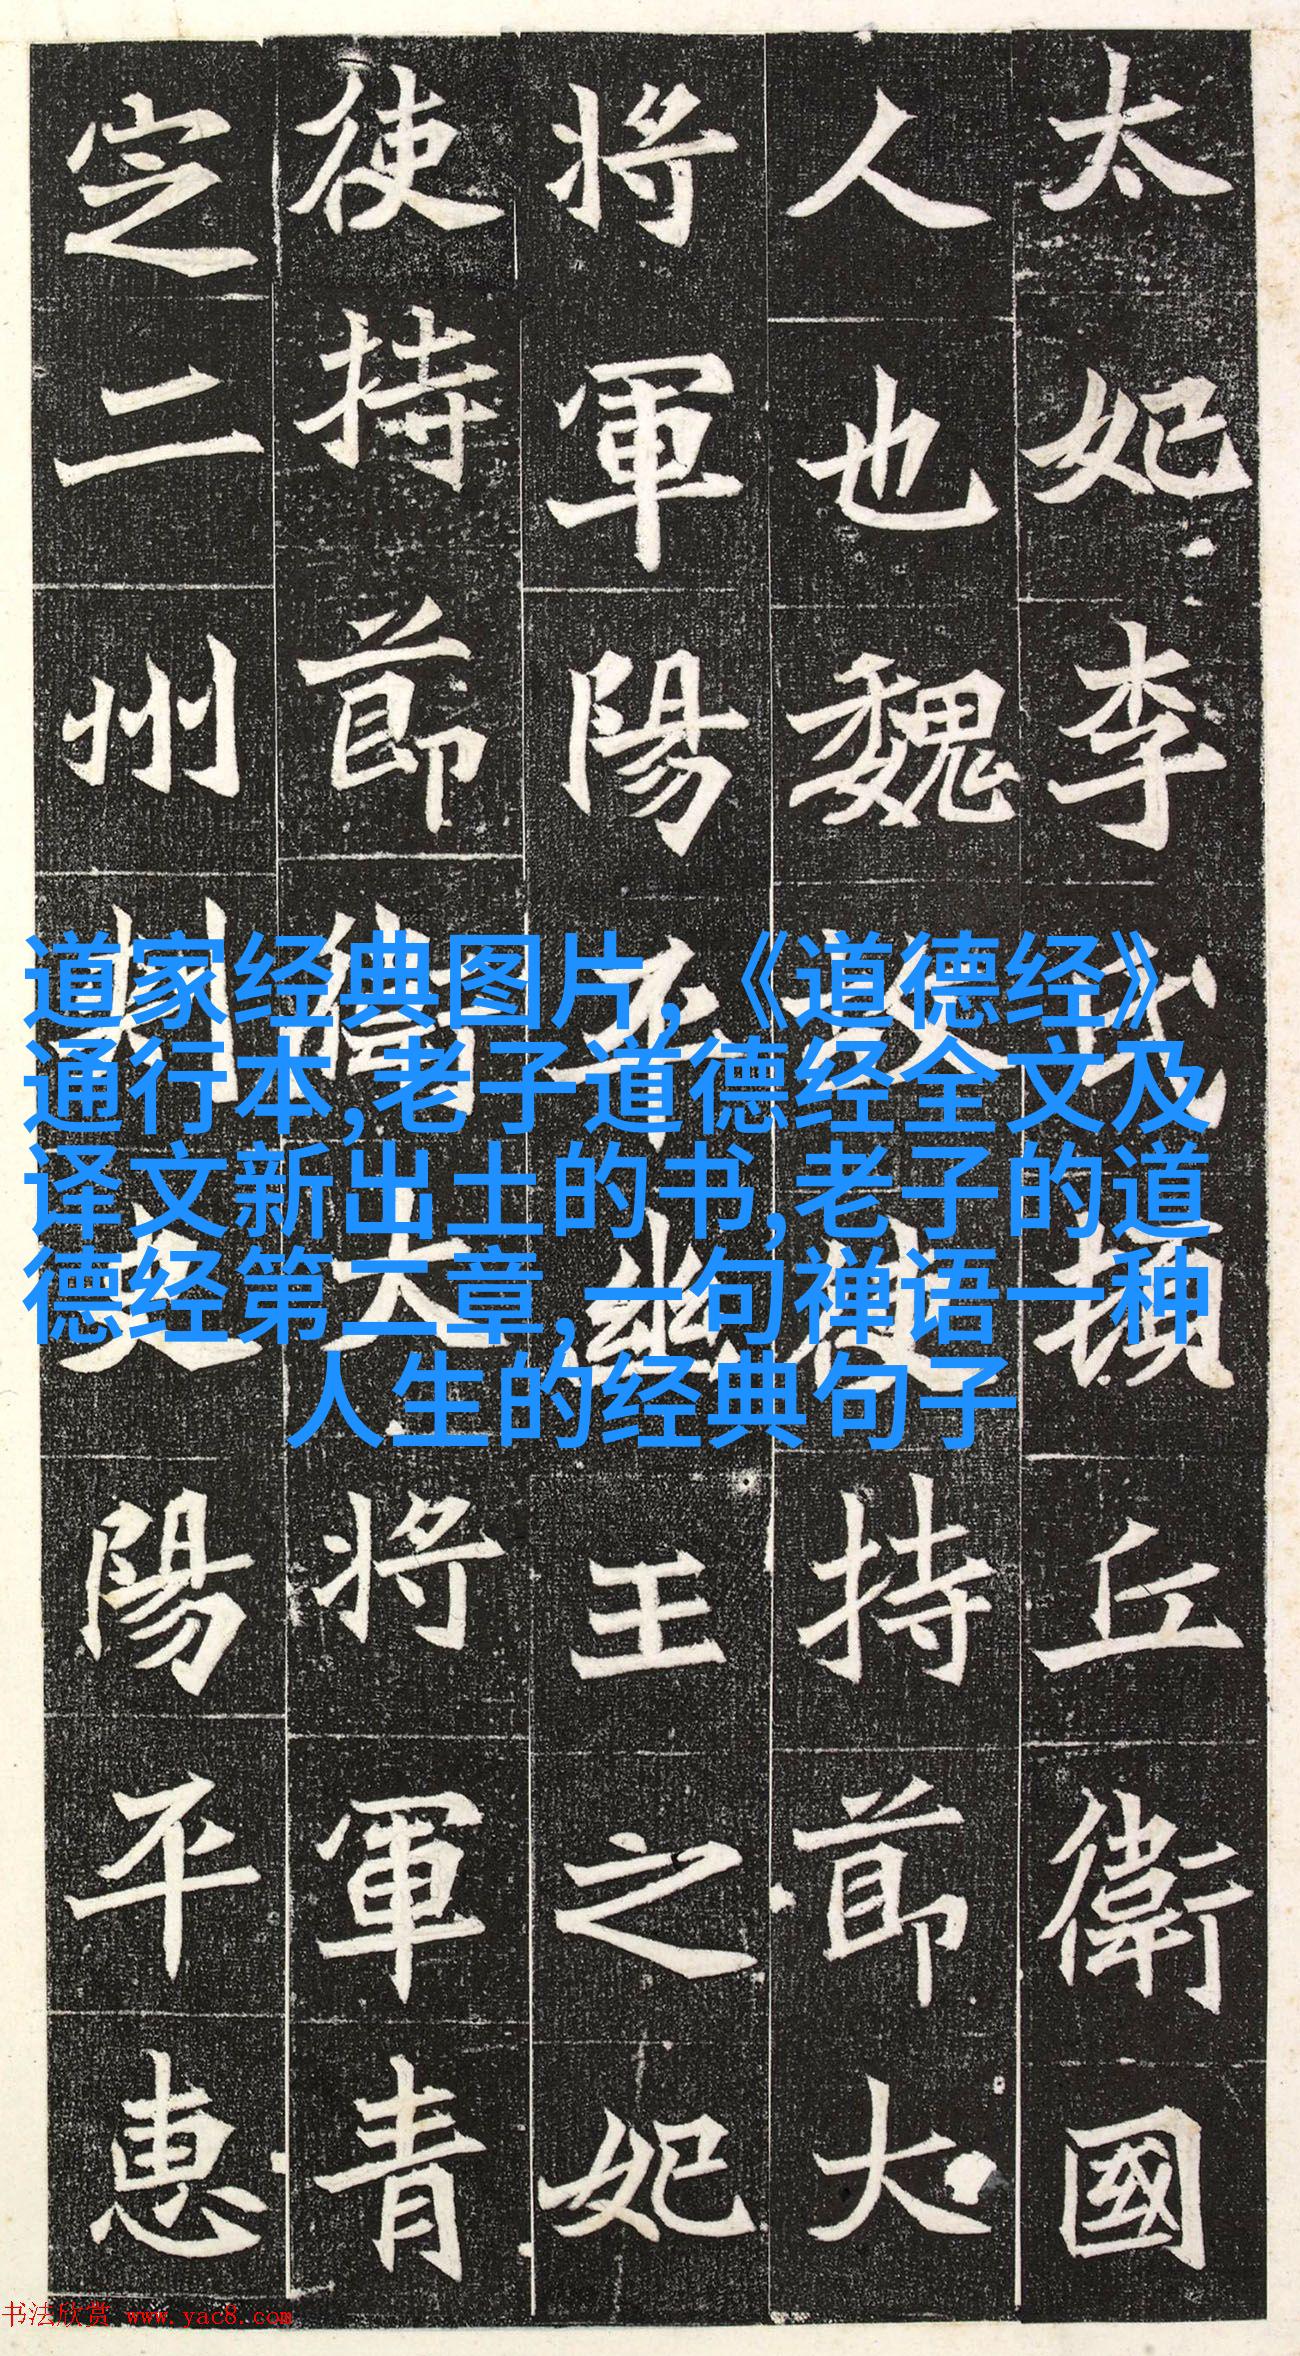 太妃李氏頓丘衛國
人也魏故使持節大
將軍陽平幽王之妃
使持節衛大將軍青
定二州刺史陽平惠
道家经典图片,《道德经》
通行本,老子道德经全文及
译文新出土的书,老子的道
德经第二章,一句禅语一种
人生的经典句子
书法欣赏 www.yac8.com